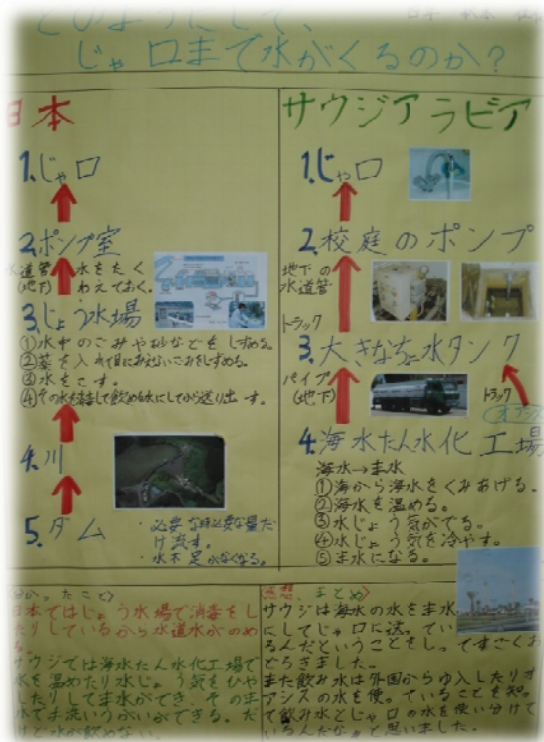 どのようにして、
じゃ口まで水がくるのか？
日本
1.じゃ口
2.ポンプ室
水道管
(地下)
水をたく
わえておく。
3.じょう水場
①水中のごみや砂などをしずめる。
②薬を入れて目にみえないごみをしずめる。
③水をこす。
④その水を消毒して飲める水にしてから送り出す。
4.川
5.ダム
・必要な時必要な量だ
け流す。
・水不足がなくなる。
サウジアラビア
1.じゃ口
2.校庭のポンプ
地下の
水道管
トラック
3.大きなちょ水タンク
パイプ
(地下)
トラック
オアシス
4.海水たん水化工場
海水→ま水
①海から海水をくみあげる。
②海水を温める。
③水じょう気がでる。
④水じょう気を冷やす。
⑤ま水になる。
〈分かったこと〉
日本ではじょう水場で消毒をし
たりしているから水道水がのめ
る。
サウジでは海水たん水化工場で
水を温めたり水じょう気をひや
したりしてま水ができ、そのま
水で手洗いうがいができる。だ
けど水が飲めない。
感想、まとめ〉
サウジは海水の水をま水
にしてじゃ口に送ってい
るんだということをしってすごくお
どろきました。
また飲み水は外国からゆ入したりオ
アシスの水を使っていることを知っ
て飲み水とじゃ口の水を使い分けて
いるんだなぁと思いました。